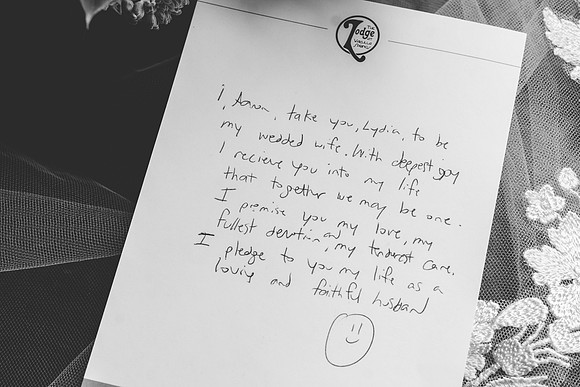 THE
Lodge
AT
I, Aaron, take you, Lydia, to be
my wedded wife. With deepest joy
I recieve you into my life
that together we may be one.
I promise you my love, my
fullest devotion, and my tenderest care.
I pledge to you my life as a
loving and faithful husband